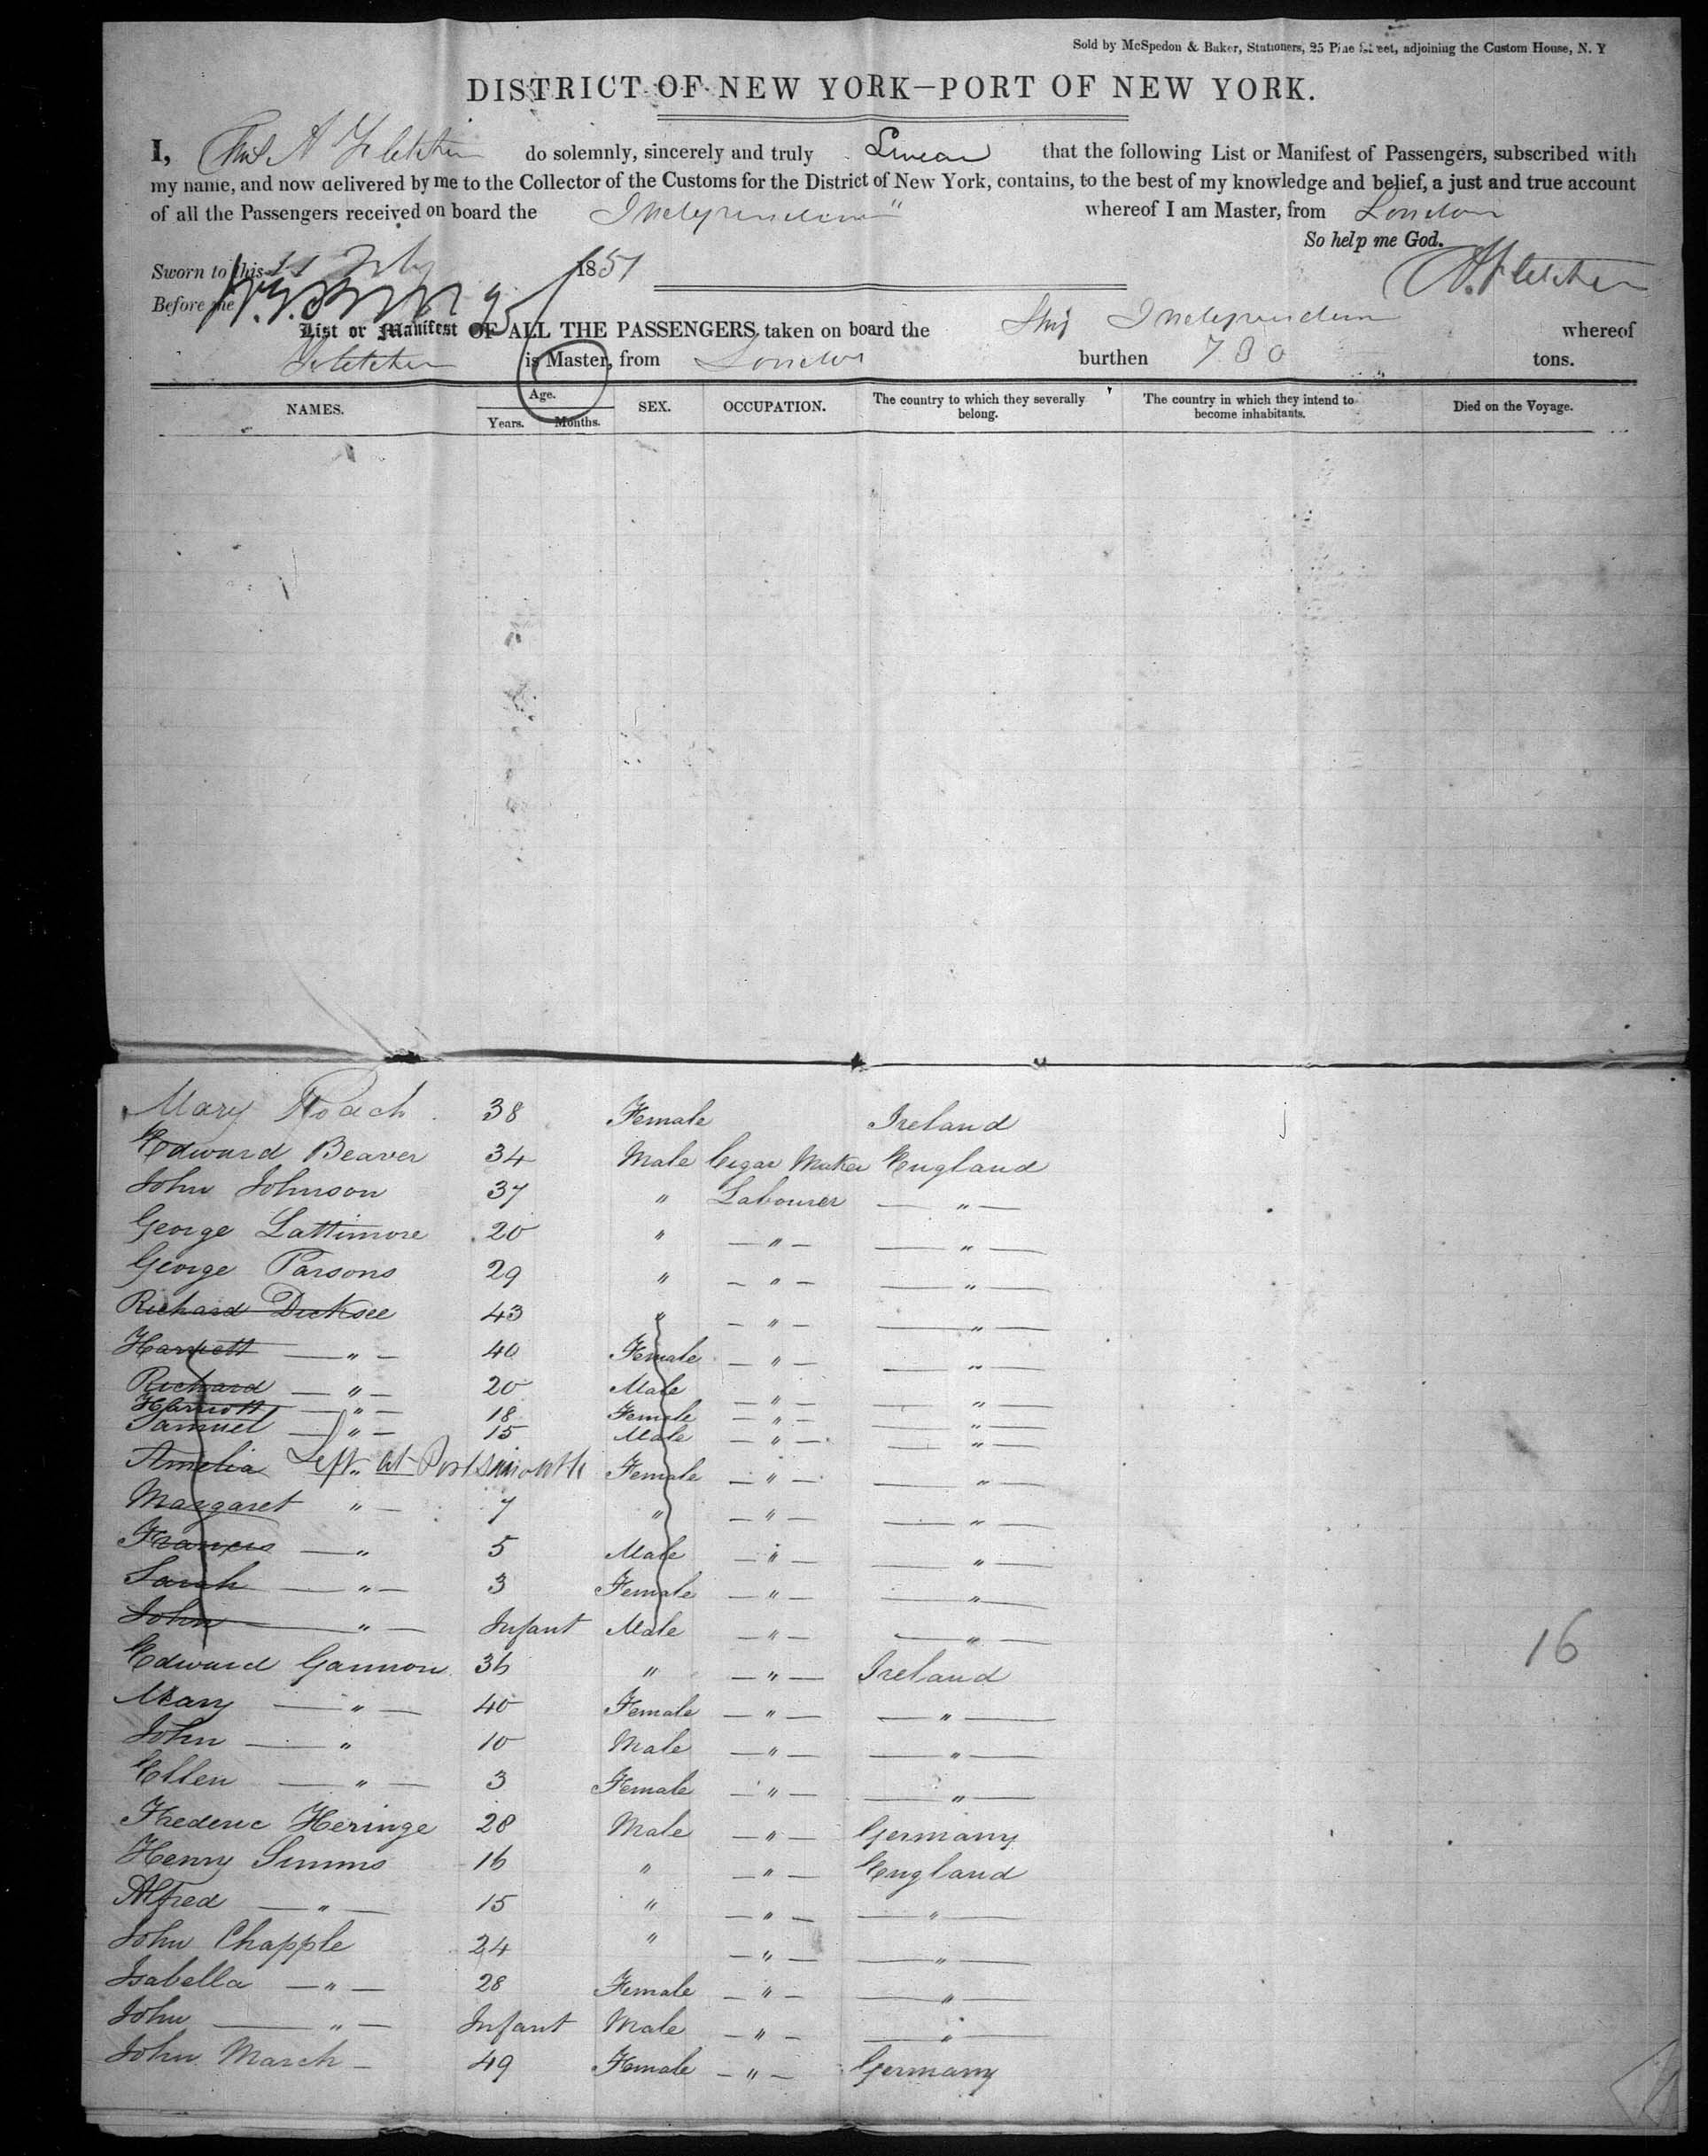 Sold by McSpedon & Baker, Stationers, 25 Pine Street, adjoining the Custom House, N. Y
DISTRICT OF NEW YORK—PORT OF NEW YORK.
I, A Fletcher do solemnly, sincerely and truly Swear that the following List or Manifest of Passengers, subscribed with
my name, and now delivered by me to the Collector of the Customs for the District of New York, contains, to the best of my knowledge and belief, a just and true account
of all the Passengers received on board the Independence" whereof I am Master, from London
So help me God.
Sworn to this 1851 A. Fletcher
Before me
List or Manifest OF ALL THE PASSENGERS taken on board the Ship Independence whereof
Fletcher is Master, from London burthen 730 tons.
NAMES. Age. Years. Months. SEX. OCCUPATION. The country to which they severally belong. The country in which they intend to become inhabitants. Died on the Voyage.
Mary Roach 38 Female Ireland
Edward Beaver 34 Male Cigar Maker England
John Johnson 37 " Labourer — " —
George Lattimore 20 " — " — — " —
George Parsons 29 " — " — — " —
Richard Dicksee 43 " — " — — " —
Harriett — " — 40 Female — " — — " —
Richard — " — 20 Male — " — — " —
Harriott — " — 18 Female — " — — " —
Samuel — " — 15 Male — " — — " —
Amelia Left at Portsmouth Female — " — — " —
Margaret " — 7 " — " — — " —
Francis — " 5 Male — " — — " —
Sarah — " — 3 Female — " — — " —
John — " — Infant Male — " — — " —
16
Edward Gannon 36 " — " — Ireland
Mary — " — 40 Female — " — — " —
John — " 10 Male — " — — " —
Ellen — " — 3 Female — " — — " —
Frederic Heringe 28 Male — " — Germany
Henry Simms 16 " — " — England
Alfred — " — 15 " — " — — " —
John Chapple 24 " — " — — " —
Isabella — " — 28 Female — " — — " —
John — " — Infant Male — " — — " —
John March — 49 Female — " — Germany